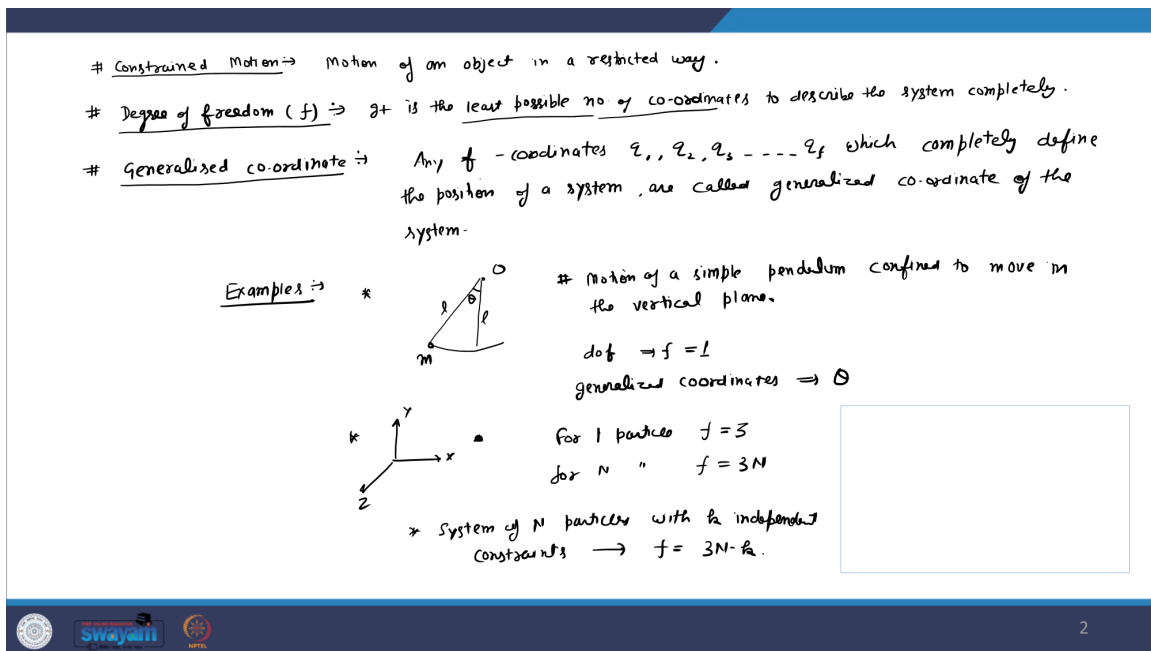 # Constrained Motion ⇒ Motion of an object in a restricted way.
# Degree of freedom (f) ⇒ It is the least possible no of co-ordinates to describe the system completely.
# Generalised co-ordinate ⇒ Any f - coodinates q₁, q₂, q₃ - - - - q_f which completely define
the position of a system, are called generalized co-ordinate of the
system.
Examples ⇒ *
O
θ
l
l
m
# Motion of a simple pendulum confined to move in
the vertical plane.
dof ⇒ f = 1
generalized coordinates ⇒ θ
*
Y
X
Z
For 1 particle f = 3
for N " f = 3N
* System of N particles with k independent
constraints → f = 3N-k.
swayam
NPTEL
2